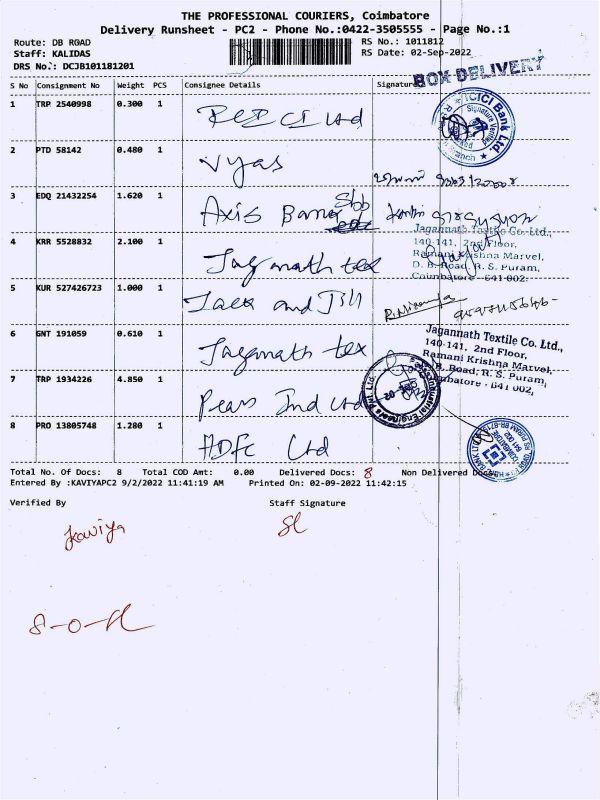 THE PROFESSIONAL COURIERS, Coimbatore
Delivery Runsheet - PC2 - Phone No.:0422-3505555 - Page No.:1
Route: DB ROAD RS No.: 1011812
Staff: KALIDAS RS Date: 02-Sep-2022
DRS No.: DCJB101181201
BOX DELIVERY
S No Consignment No Weight PCS Consignee Details Signature
1 TRP 2540998 0.300 1 Ltd
ICICI Bank Ltd.
Signature Verified
Branch
2 PTD 58142 0.480 1 Vyas
3 EDQ 21432254 1.620 1 Axis
Jagannath Textile Co. Ltd.,
140-141, 2nd Floor,
4 KRR 5528832 2.100 1 Jagannath tex
Ramani Krishna Marvel,
D. B. Road, R. S. Puram,
Coimbatore - 641 002.
5 KUR 527426723 1.000 1 Jack and Jill
6 GNT 191059 0.610 1 Jagannath tex
Jagannath Textile Co. Ltd.,
140-141, 2nd Floor,
Ramani Krishna Marvel,
B. Road, R. S. Puram,
641 002,
7 TRP 1934226 4.850 1 Pears Ind Ltd
Industrial Engineers Pvt. Ltd.
8 PRO 13805748 1.280 1 HDFC Ltd
COIMBATORE
641 002
Total No. Of Docs: 8 Total COD Amt: 0.00 Delivered Docs: 8 Non Delivered Docs:
Entered By :KAVIYAPC2 9/2/2022 11:41:19 AM Printed On: 02-09-2022 11:42:15
Verified By Staff Signature
Kaviya